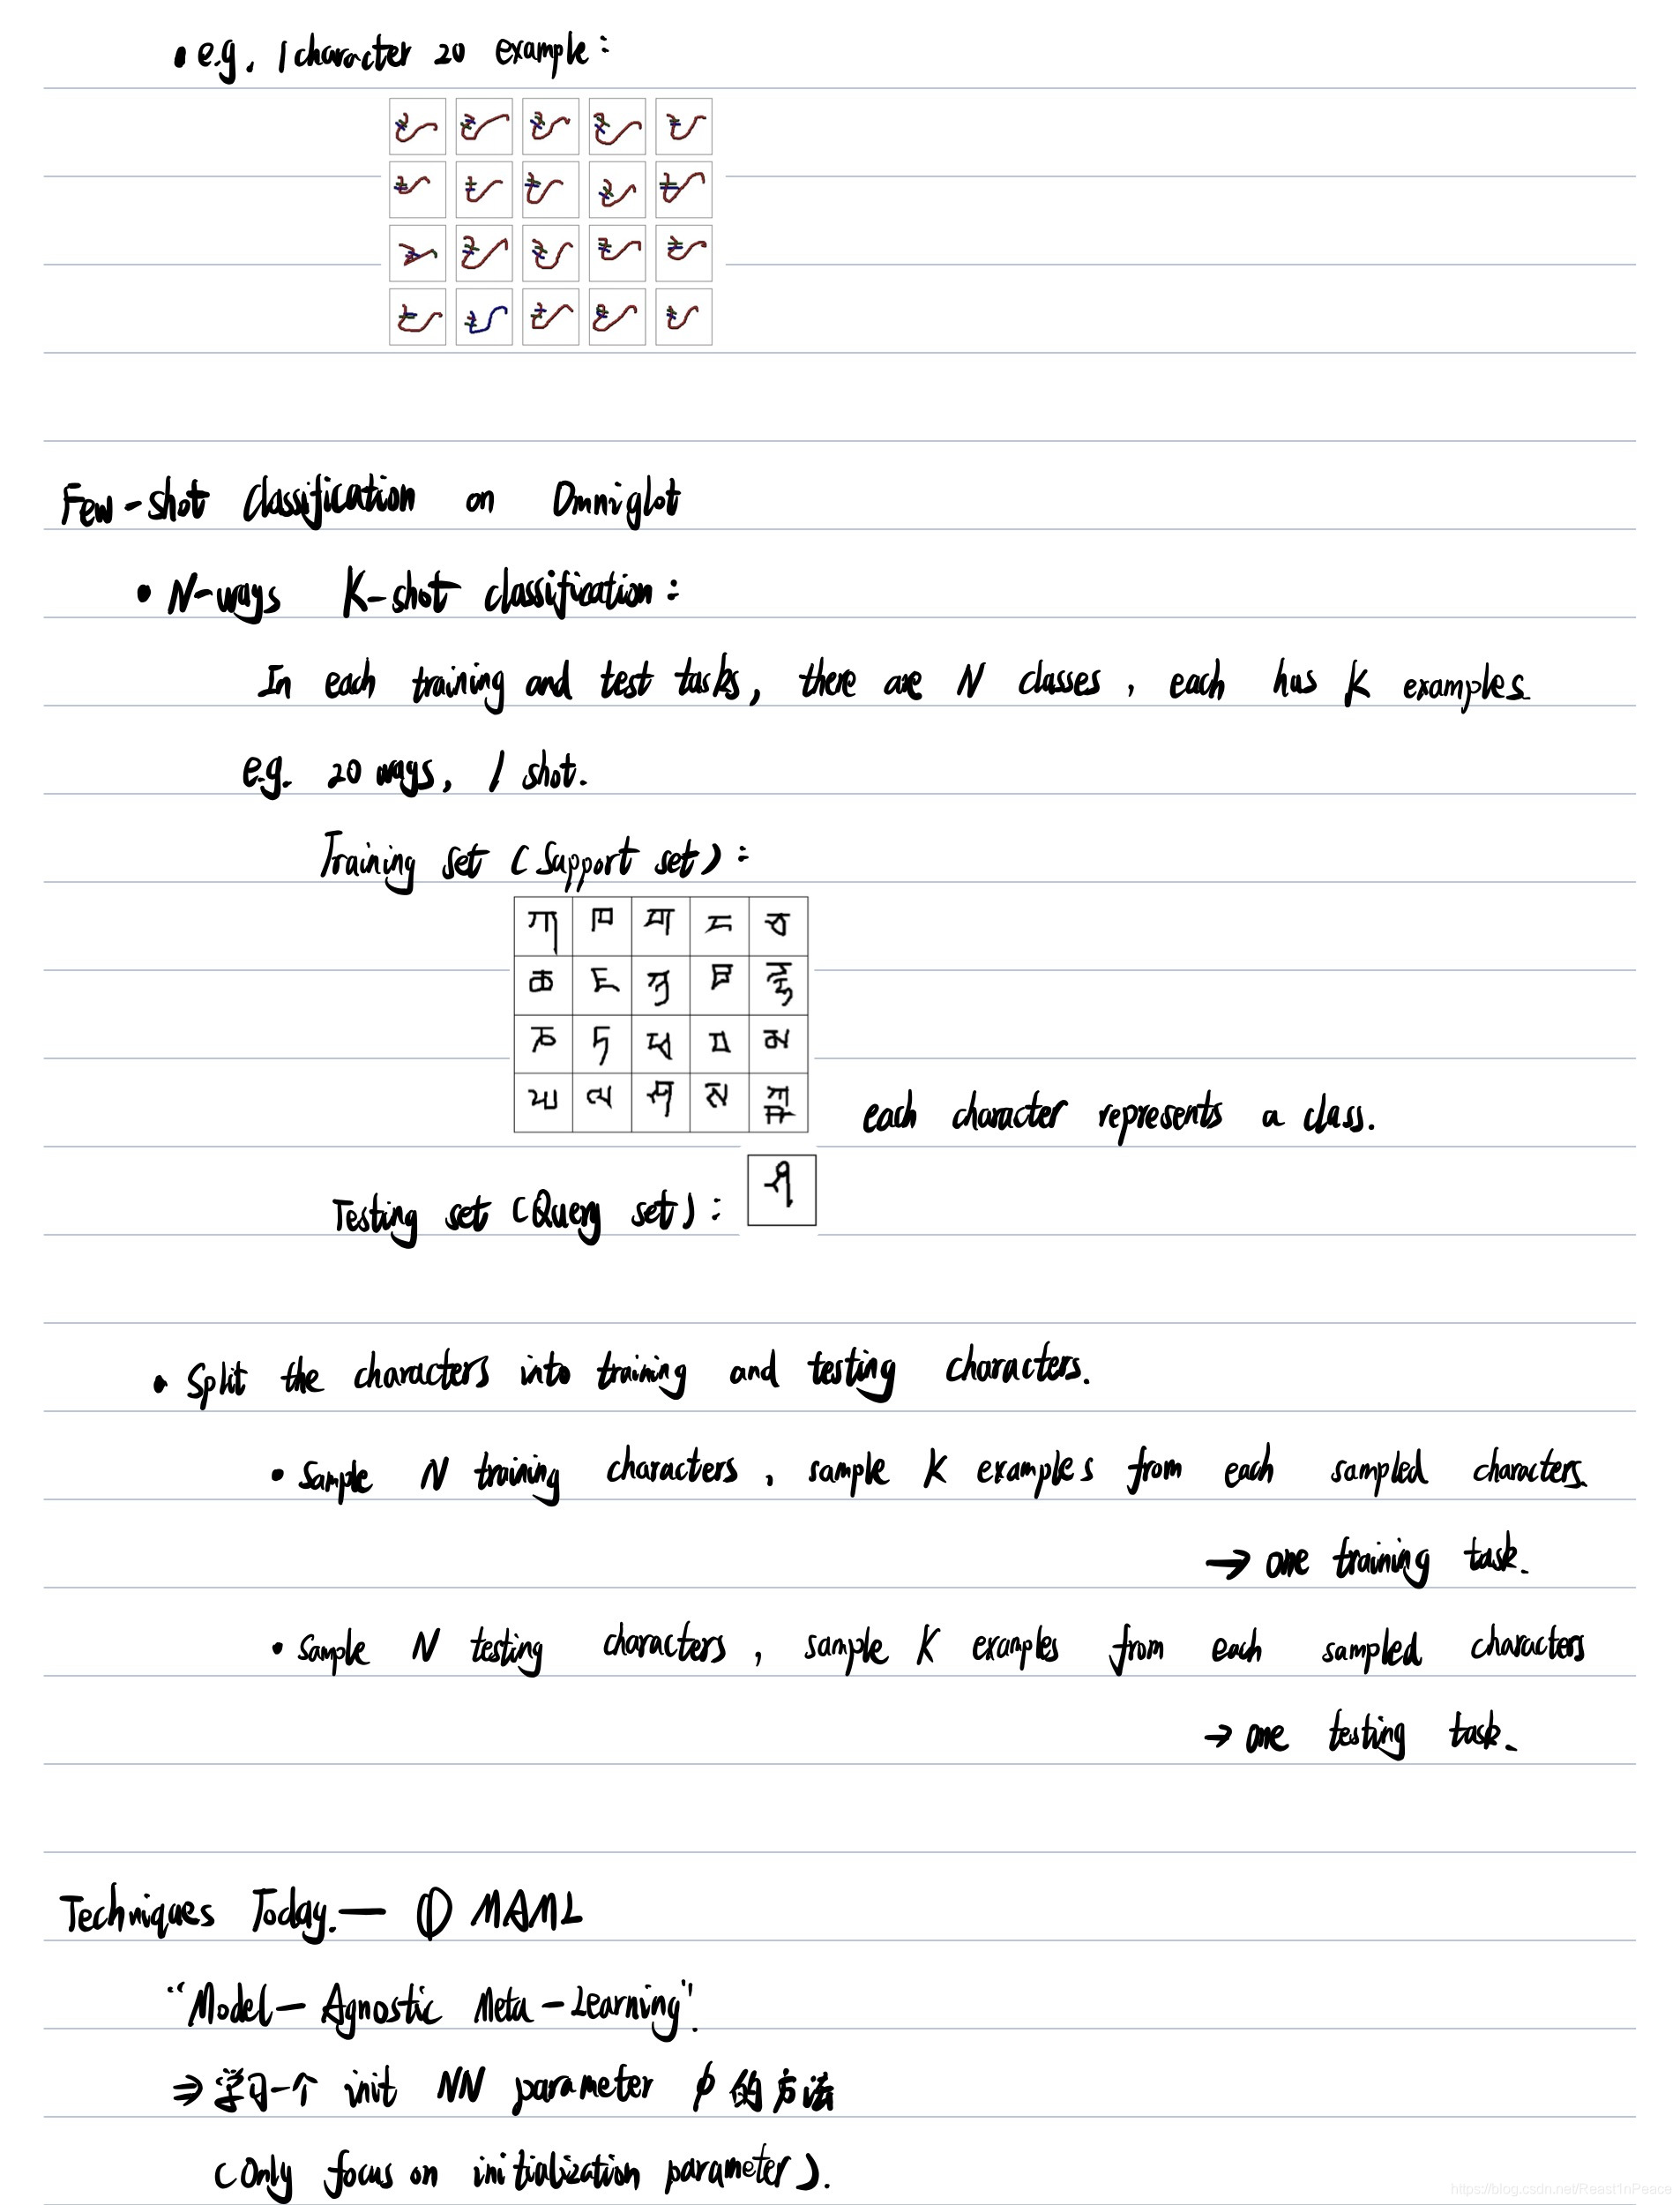 • e.g. 1 character 20 example:
Few-shot classification on Omniglot
• N-ways K-shot classification:
In each training and test tasks, there are N classes, each has K examples.
e.g. 20 ways, 1 shot.
Training set (Support set):
each character represents a class.
Testing set (Query set):
• Split the characters into training and testing characters.
• Sample N training characters, sample K examples from each sampled characters.
→ one training task.
• Sample N testing characters, sample K examples from each sampled characters
→ one testing task.
Techniques Today. — ① MAML
"Model-Agnostic Meta-Learning".
⇒ 学习一个 init NN parameter ϕ 的方法
(Only focus on initialization parameter).
https://blog.csdn.net/Reast1nPeace